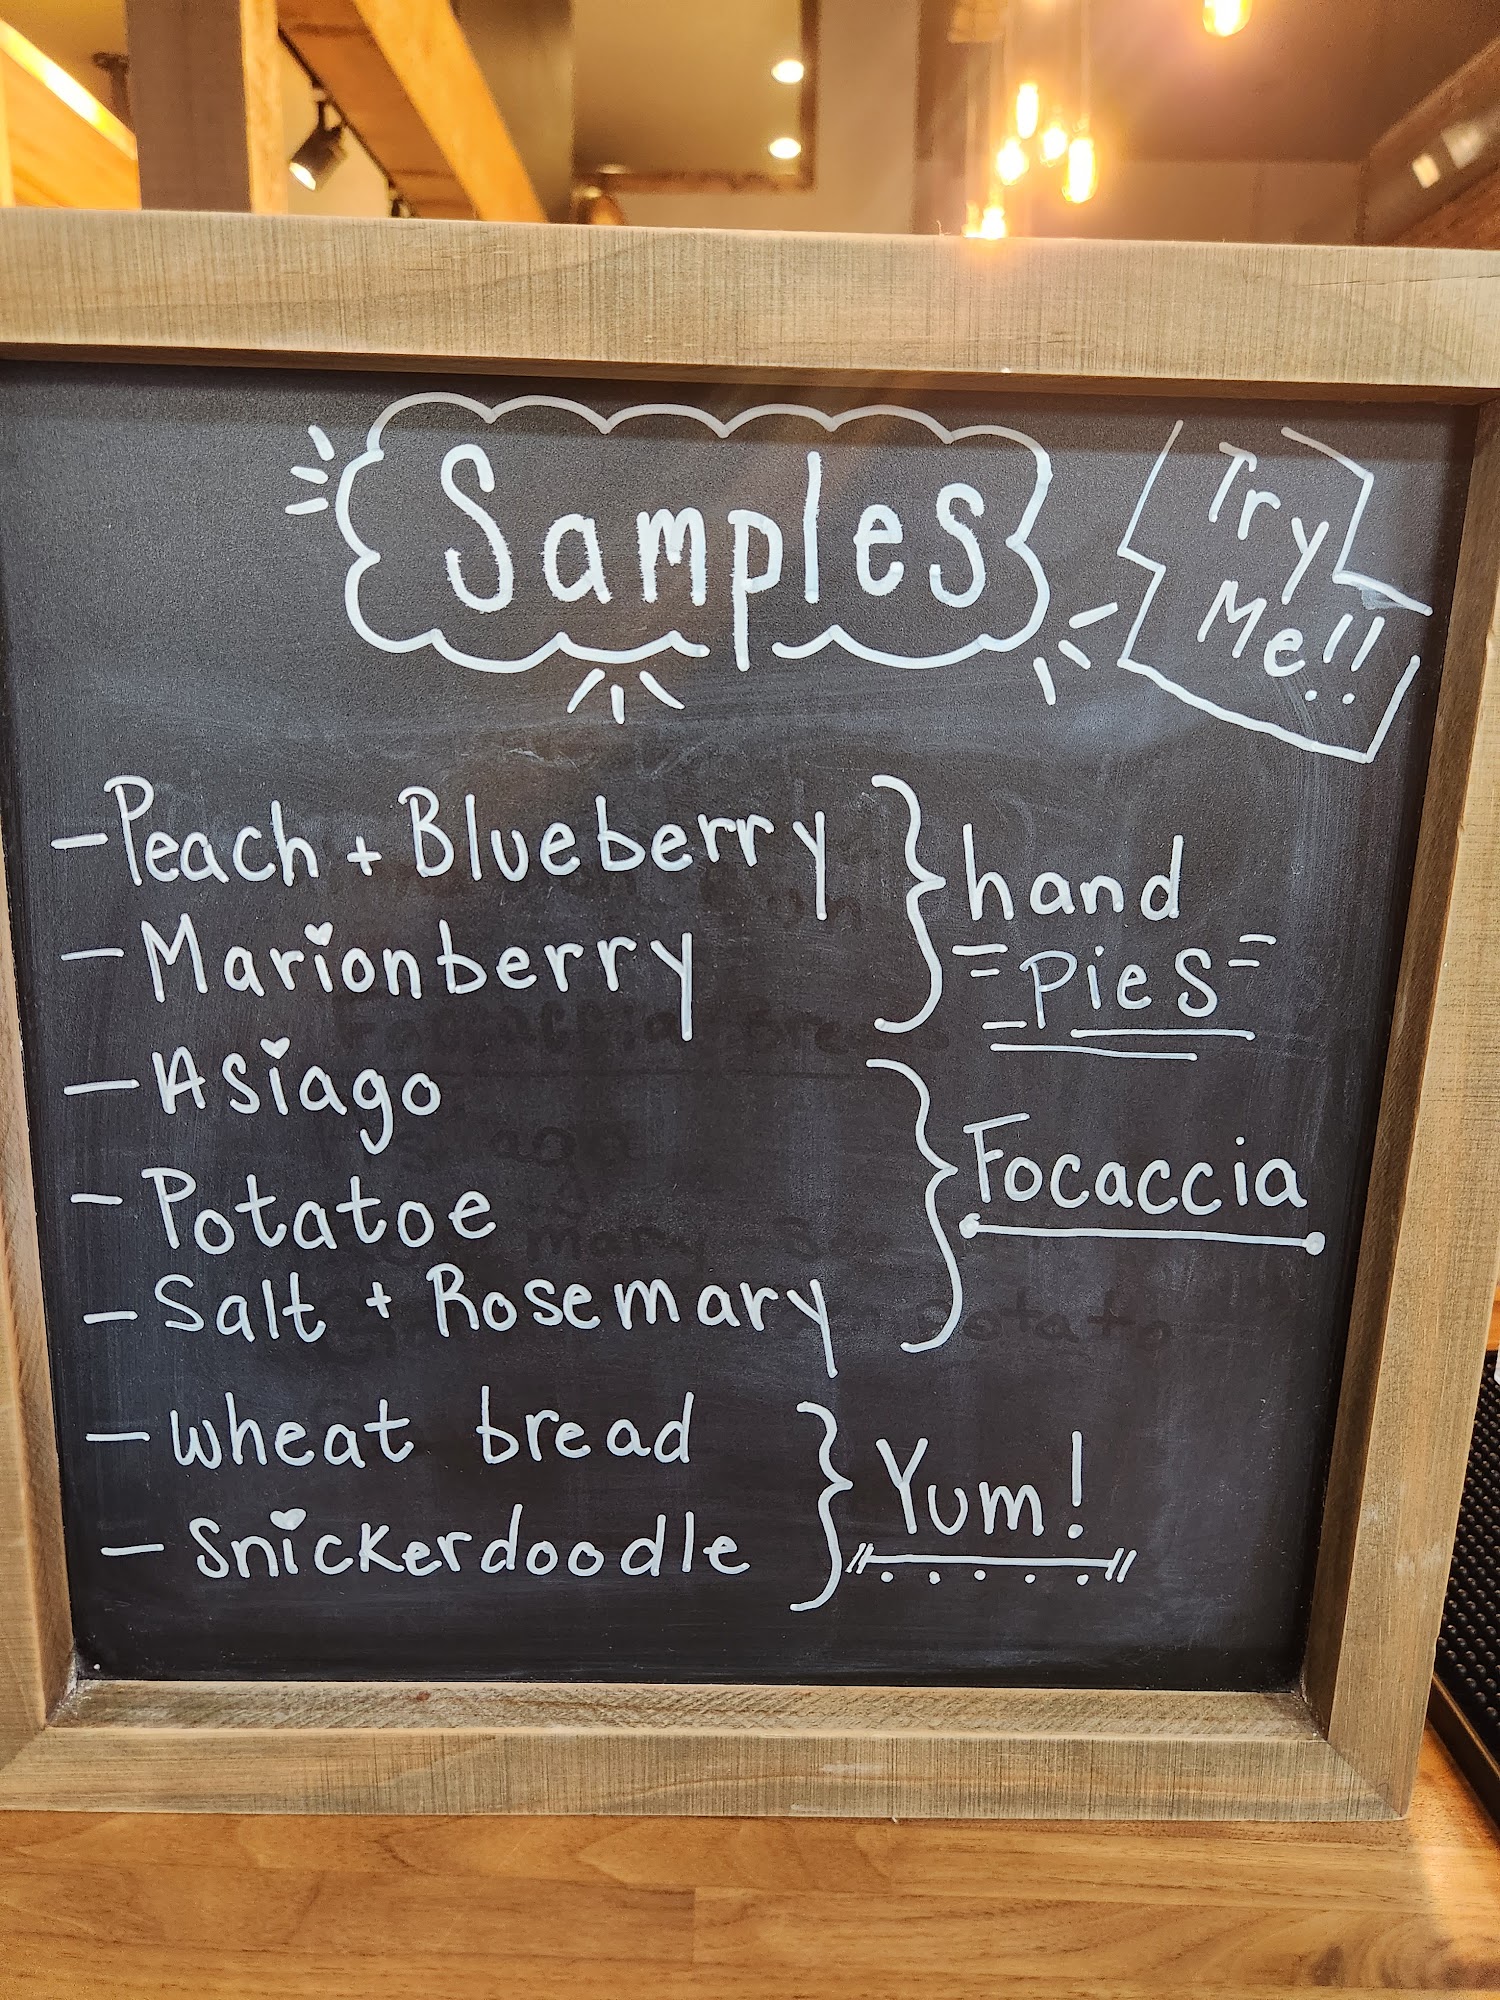 Samples
Try
Me!!
- Peach + Blueberry
- Marionberry
hand
pies
- Asiago
- Potatoe
- Salt + Rosemary
Focaccia
- wheat bread
- Snickerdoodle
Yum!